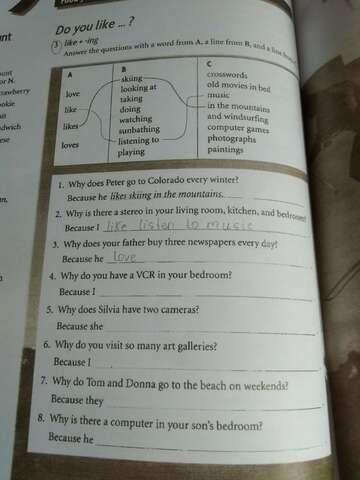 Do you like ... ?
3 like + -ing
Answer the questions with a word from A, a line from B, and a line from
A B C
love
like
likes
loves
skiing
looking at
taking
doing
watching
sunbathing
listening to
playing
crosswords
old movies in bed
music
in the mountains
and windsurfing
computer games
photographs
paintings
1. Why does Peter go to Colorado every winter?
Because he likes skiing in the mountains.
2. Why is there a stereo in your living room, kitchen, and bedroom?
Because I like listen to music
3. Why does your father buy three newspapers every day?
Because he love
4. Why do you have a VCR in your bedroom?
Because I
5. Why does Silvia have two cameras?
Because she
6. Why do you visit so many art galleries?
Because I
7. Why do Tom and Donna go to the beach on weekends?
Because they
8. Why is there a computer in your son's bedroom?
Because he